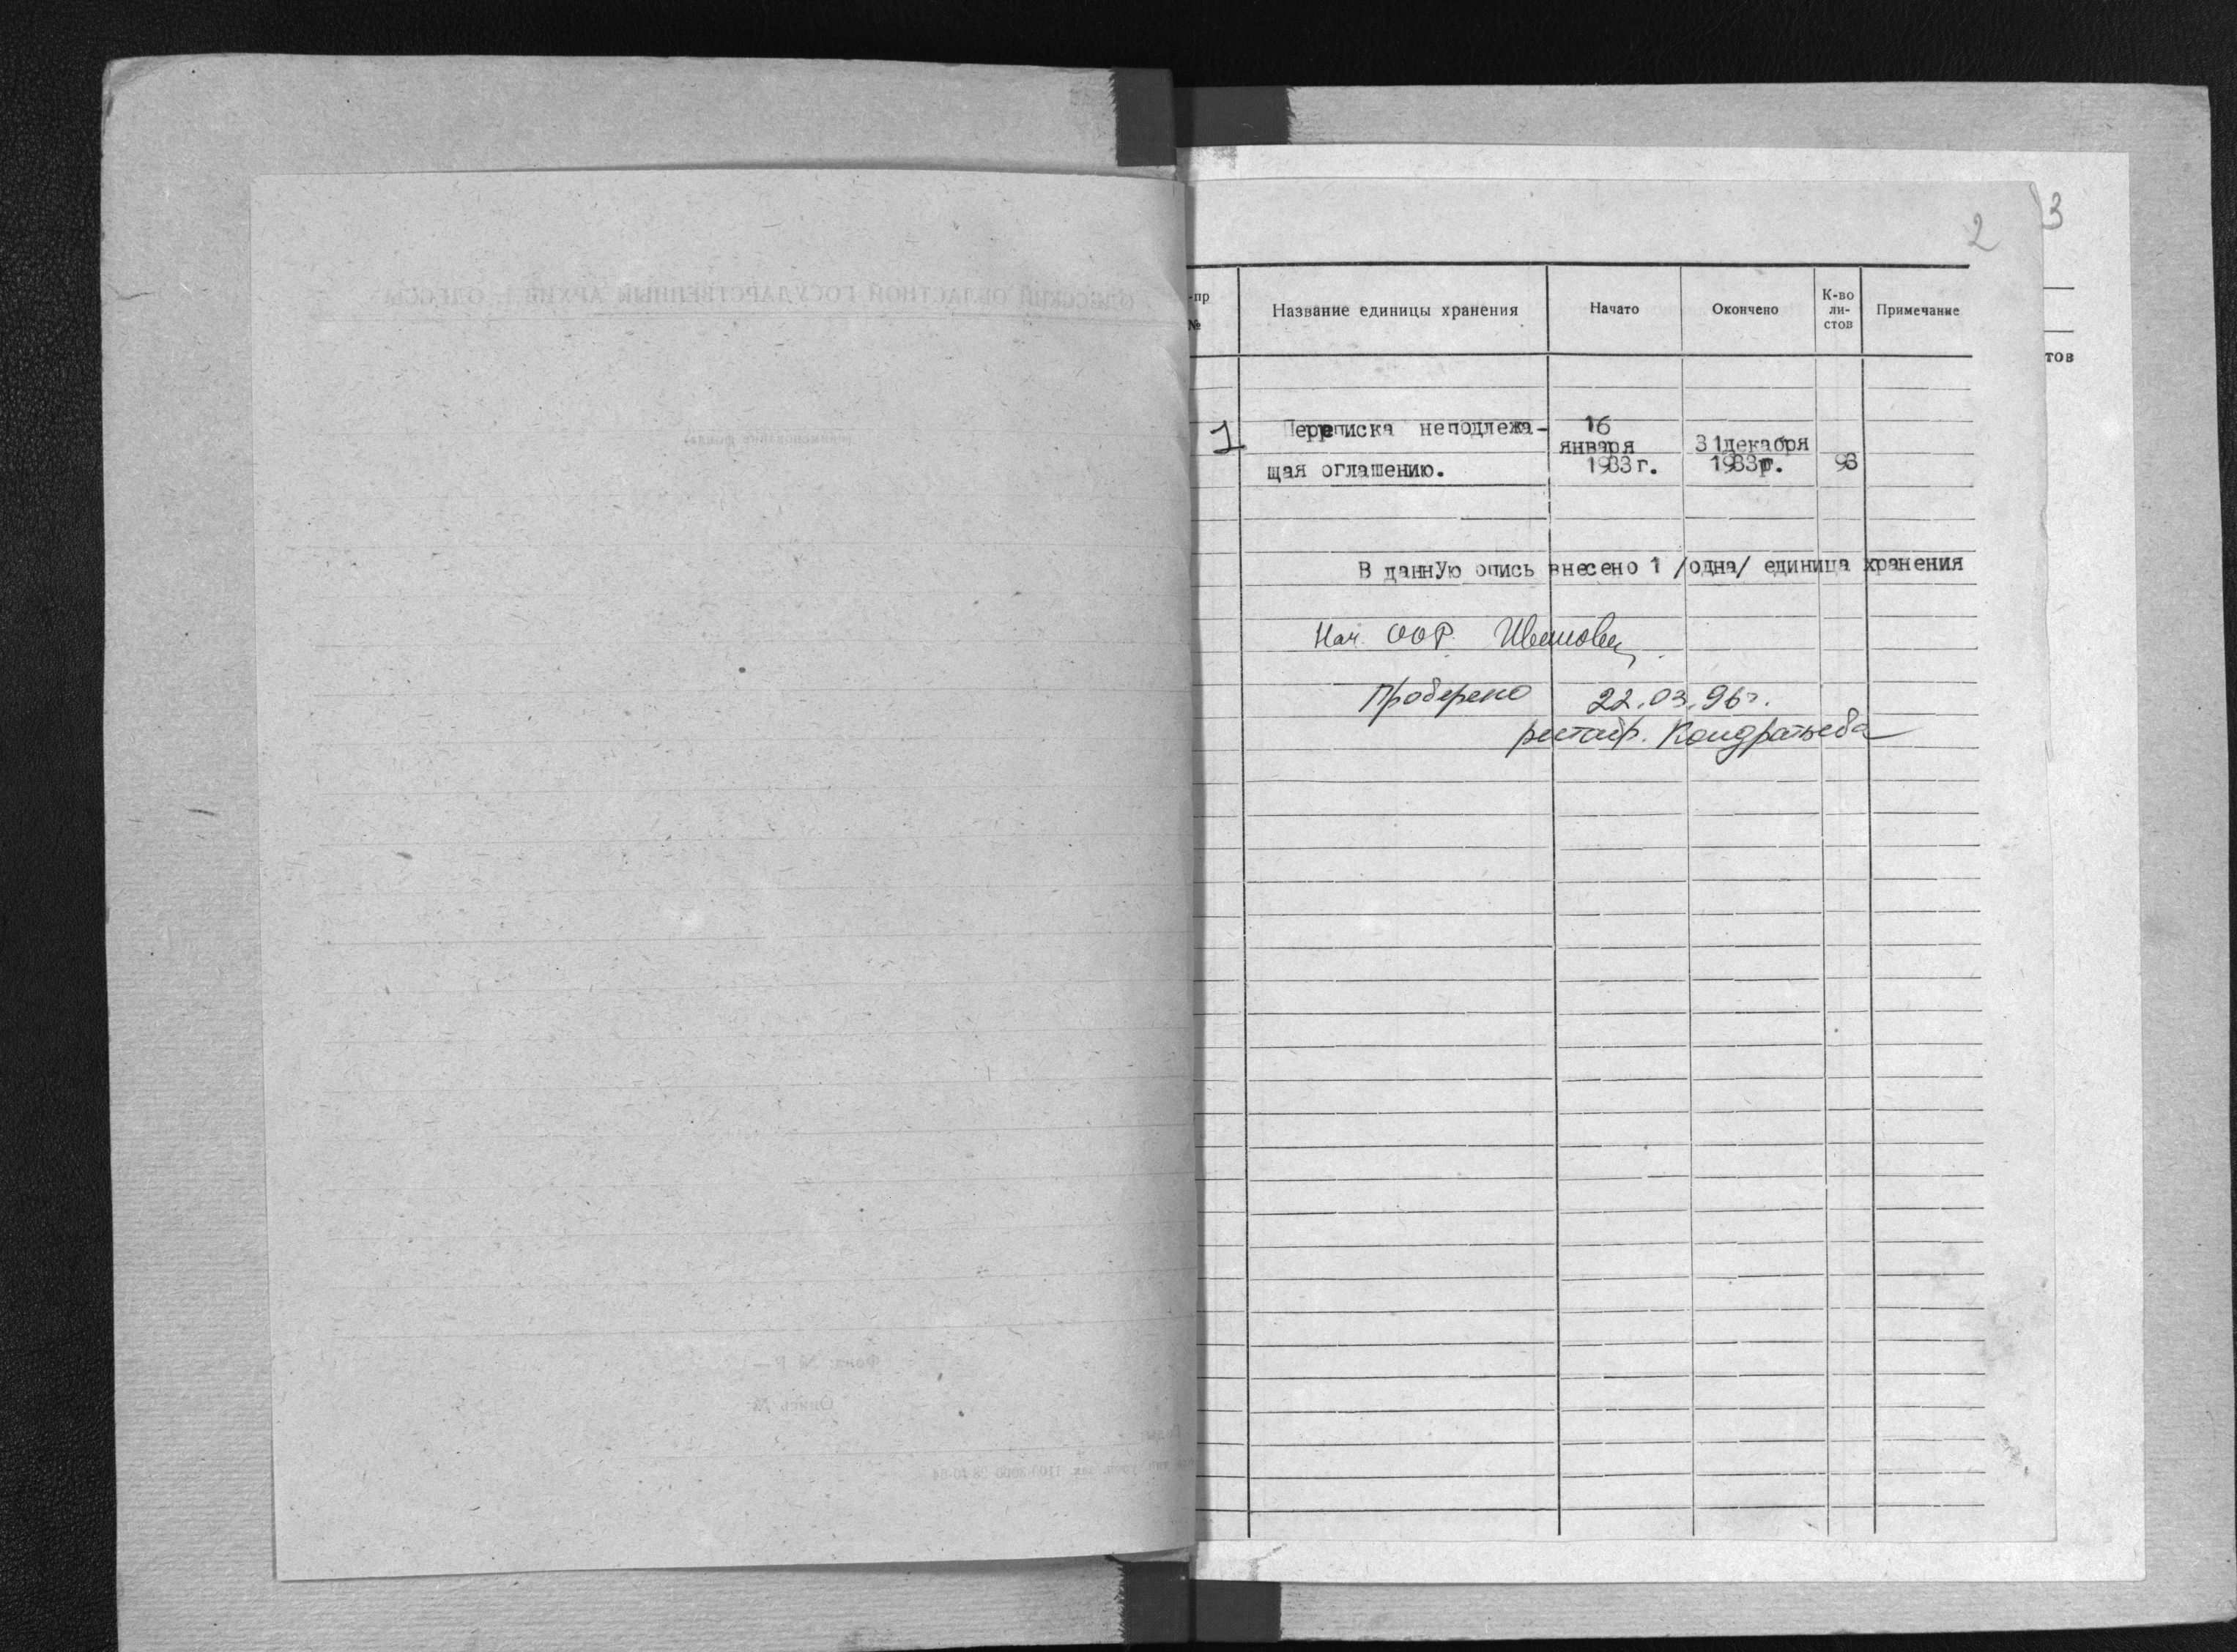 2
3
-пр
№
Название единицы хранения
Начато
Окончено
К-во
ли-
стов
Примечание
тов
1
Переписка неподлежа-
щая оглашению.
16
января
1933г.
31декабря
1933г.
93
В даннУю опись внесено 1 /одна/ единица хранения
Нач. ООР.
Проверено 22.03.96г.
реставр. Кондратьева